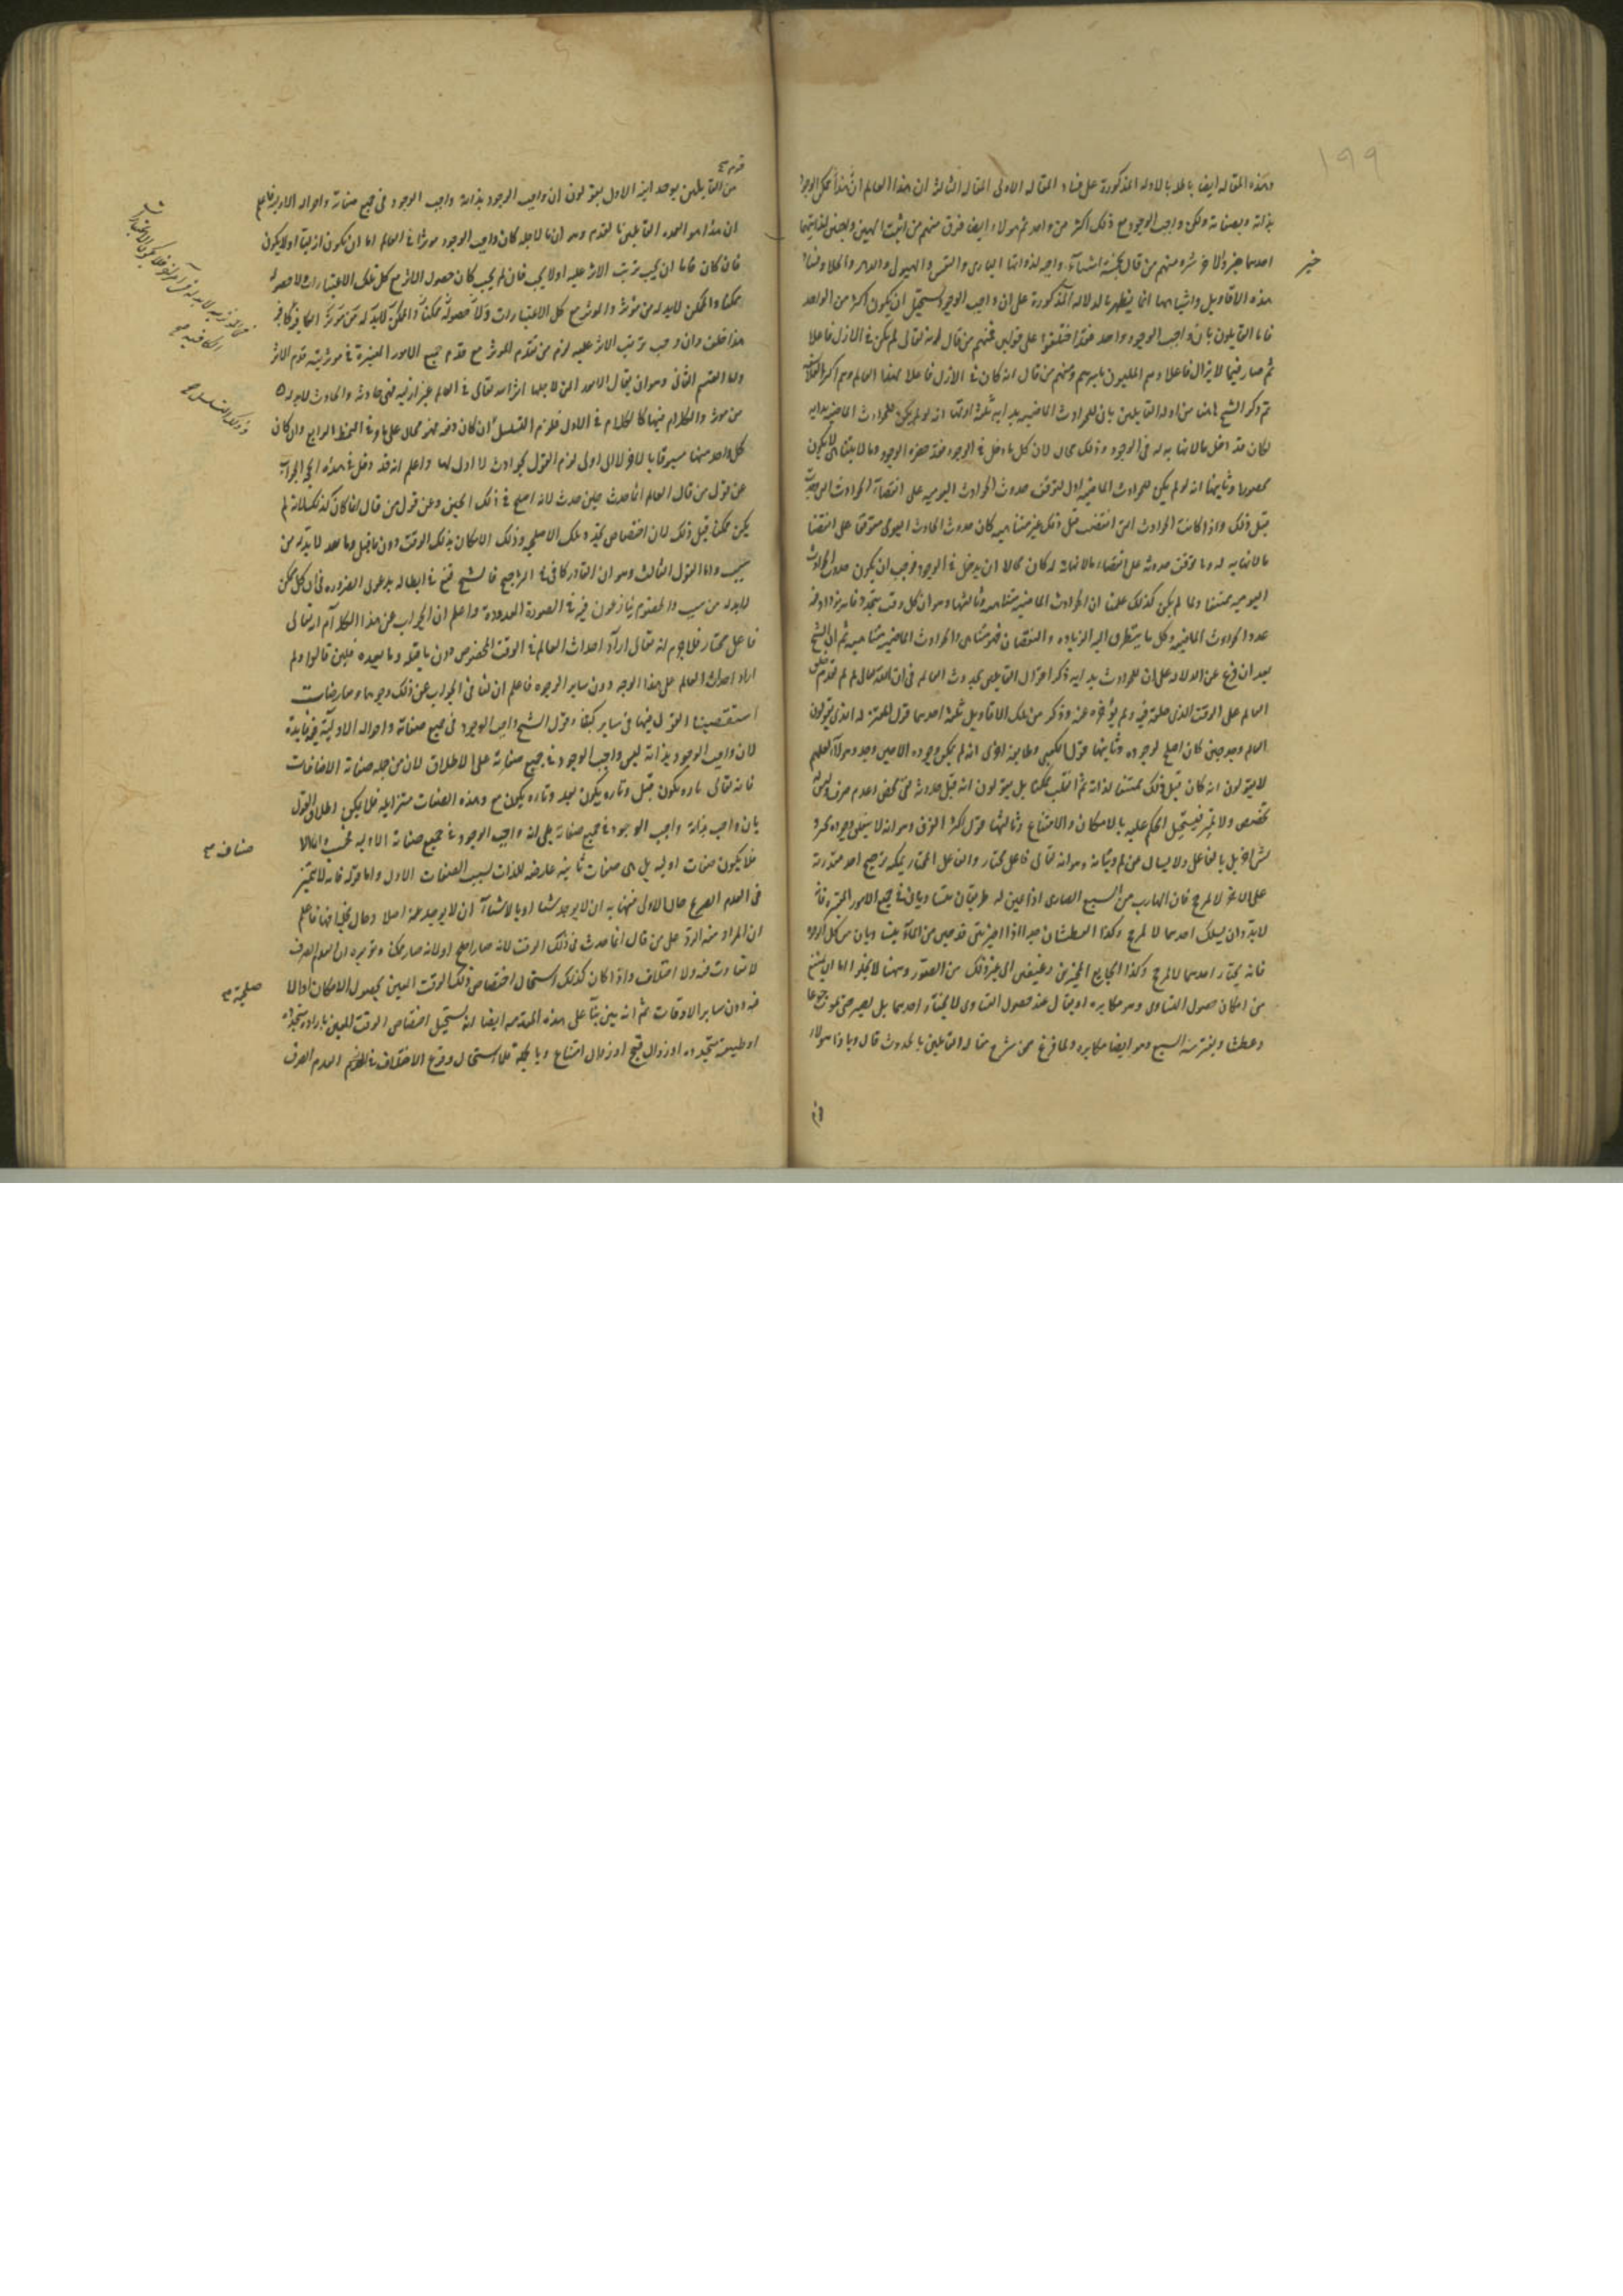 ١٩٩
وهذه المقاله ايضا باطله بالادله المذكورة على فساد المقاله الاولى المقاله الثالثه ان هذا العالم ممكن الوجود
بذاته وبصفاته ولكن واجب الوجود مع ذلك اكثر من واحد ثم هولاء ايضا فرق منهم من اثبت الهين
احدهما خير والاخر شره ومنهم من قال بخمسة اشياء واجبة لذواتها البارى والنفس والهيولى والدهر والخلا وفساد
خير
هذه الاقاويل واشباهها انما يظهر بالدلاله المذكورة على ان واجب الوجود يستحيل ان يكون اكثر من الواحد
فاما القايلون بان واجب الوجود واحد فقد اختلفوا على قولين فمنهم من قال انه تعالى لم يكن فى الازل فاعلا
ثم صار فيما لا يزال فاعلا وهم المليون باسرهم ومنهم من قال انه كان فى الازل فاعلا لهذا العالم وهم اكثر الفلاسفة
ثم ذكر الشيخ هاهنا من ادله القايلين بان للحوادث الماضيه بدايه ثلثة اولها انه لو لم يكن للحوادث الماضيه بدايه
لكان قد دخل ما لا نهايه له فى الوجود وذلك محال لان كل ما دخل فى الوجود فقد حصره الوجود وما لا يتناهى لا يكون
محصورا وثانيها انه لو لم يكن للحوادث الماضيه اول لتوقف حدوث الحوادث اليوميه على انقضاء الحوادث التى
قبل ذلك واذا كانت الحوادث التى انقضت قبل ذلك غير متناهيه كان حدوث الحادث اليومى متوقفا على انقضا
ما لا نهايه له وما توقف حدوثه على انقضاء ما لا نهاية له كان محالا ان يدخل فى الوجود فوجب ان يكون حدوث الحوادث
اليوميه ممتنعا ولما لم يكن كذلك علمنا ان الحوادث الماضيه متناهيه وثالثها وهو ان كل وقت يتجدد فانه يزداد فيه
عدد الحوادث الماضيه وكل ما يتطرق اليه الزياده والنقصان فهو متناهى فالحوادث الماضيه متناهيه ثم ان الشيخ
بعد ان فرغ عن الدلاله على ان للحوادث بدايه ذكر اقوال القايلين بحدوث العالم فى ان الله تعالى لم لم يقدم خلق
العالم على الوقت الذى خلقه فيه ولم يؤخره عنه وذكر من تلك الاقاويل ثلثة احدها قول المعتزله الذى يقولون
العالم وجد حين كان اصلح لوجوده وثانيها قول الكعبى وطايفة اخرى انه لم يمكن وجوده الا حين وجد وهولاء لعلهم
لا يقولون انه كان قبل ذلك ممتنعا لذاته ثم انقلب ممكنا بل يقولون انه قبل حدوثه نفى محض وعدم صرف ليس له
تخصص ولا تميز فيستحيل الحكم عليه بالامكان والامتناع وثالثها قول اكثر الفرق وهو انه لا يتعلق وجوده بحين و
شئ اخر بل بالفاعل ولا يسال عن لم وبيانه وهو انه تعالى فاعل مختار والفاعل المختار يمكنه ترجيح احد مقدوريه
على الاخر لا لمرجح فان الهارب من السبع الضارى اذا عن له طريقان متساويان فى جميع الامور المعتبره فانه
لابد وان يسلك احدهما لا لمرجح وكذا العطشان
فانه يختار احدهما لا لمرجح وكذا الجايع المخير بين رغيفين الى غير ذلك من الصور وههنا لا يخلو اما ان يمنع
من امكان حصول التساوى وهو مكابره او يقال عند حصول التساوى لا يختار احدهما بل يصبر حتى يموت جوعا
وعطشا ويفترسه السبع وهو ايضا مكابره ولما فرغ من شرح مقاله القايلين بالحدوث قال وبازا هولاء
من القايلين بوحدانيه الاول يقولون ان واجب الوجود بذاته واجب الوجود فى جميع صفاته واحواله الاوليه فاعلم
ان هذا هو العمده القايلين بالقدم وهو ان ما لاجله كان واجب الوجود موثرا فى العالم اما ان يكون ازليا او لا يكون
فان كان فاما ان يجب ترتب الاثر عليه او لا يجب فان لم يجب كان حصول الاثر مع كل تلك الاعتبارات لا حصوله
ممكنا والممكن لابد له من موثر والموثر مع كل الاعتبارات
هذا خلف وان وجب ترتب الاثر عليه لزم من قدم الموثر مع قدم جميع الامور المعتبرة فى موثريته قدم الاثر
واما القسم الثانى وهو ان يقال الامور التى لاجلها اثر الله تعالى فى العالم غير ازليه فهى حادثه والحادث لابد له
من موثر والكلام فيها كالكلام فى الاول فلزم التسلسل ان كان دفعه فهو محال على ما مر فى النمط الرابع وان كان
وذلك التسلسل صح
كل واحد منها مسبوقا بالاخر لا الى اول لزم القول بحوادث لا اول لها واعلم انه قد دخل فى هذه الحجه الجواب
عن قول من قال العالم انما حدث حين حدث لانه اصلح فى ذلك الحين وعن قول من قال انما كان كذلك لانه لم
يكن ممكنا قبل ذلك لان اختصاص حدوثه بتلك الاصلحيه وذلك الامكان بذلك الوقت دون ما قبل وما بعد لابد له من
سبب واما القول الثالث وهو ان القادر كاف فى الترجيح فالشيخ قنع فى ابطاله بدعوى الضروره فى ان كل ممكن
لابد له من سبب والخصوم ينازعون فيه فى الصورة المعدودة واعلم ان الجواب عن هذا الكلام انه تعالى
فاعل مختار فلا جرم انه تعالى اراد احداث العالم فى الوقت المخصوص دون ما قبله وما بعده فلين قالوا ولم
اراد احداث العالم على هذا الوجه دون ساير الوجوه فاعلم ان لنا فى الجواب عن ذلك وجوها ومعارضات
استقصينا القول فيها فى ساير كتبنا وقول الشيخ واجب الوجود فى جميع صفاته واحواله الاوليه فيه فايدة
لان واجب الوجود بذاته ليس واجب الوجود فى جميع صفاته على الاطلاق لان من جمله صفاته الاضافات
فانه تعالى تاره يكون قبل وتاره يكون بعد وتاره يكون مع وهذه الصفات متزايله فلا يمكن اطلاق القول
بان واجب بذاته واجب الوجود فى جميع صفاته بلى انه واجب الوجود فى جميع صفاته الاوليه
فلا يكون صفات اوليه بل هى صفات ثانيه عارضه للذات بسبب الصفات الاول واما قوله فانه لا يتميز
فى العدم الصريح حال الاولى فيها به ان لا يوجد شيئا او بالاشياء ان لا يوجد عنه اصلا وحال بخلافها فاعلم
ان المراد منه الرد على من قال انما حدث فى ذلك الوقت لانه صار اصلح او لانه صار ممكنا وتقريره ان العدم الصرف
لا تفاوت فيه ولا اختلاف واذا كان كذلك استحال اختصاص ذلك الوقت المعين بحصول الامكان
فيه دون ساير الاوقات ثم انه بين بناء على هذه المقدمه ايضا انه يستحيل اختصاص الوقت المعين باراده متجدده
او طبيعه متجدده او زوال قبح او زوال امتناع وبالجمله فلما استحال وقوع الاختلاف فى العدم الصرف